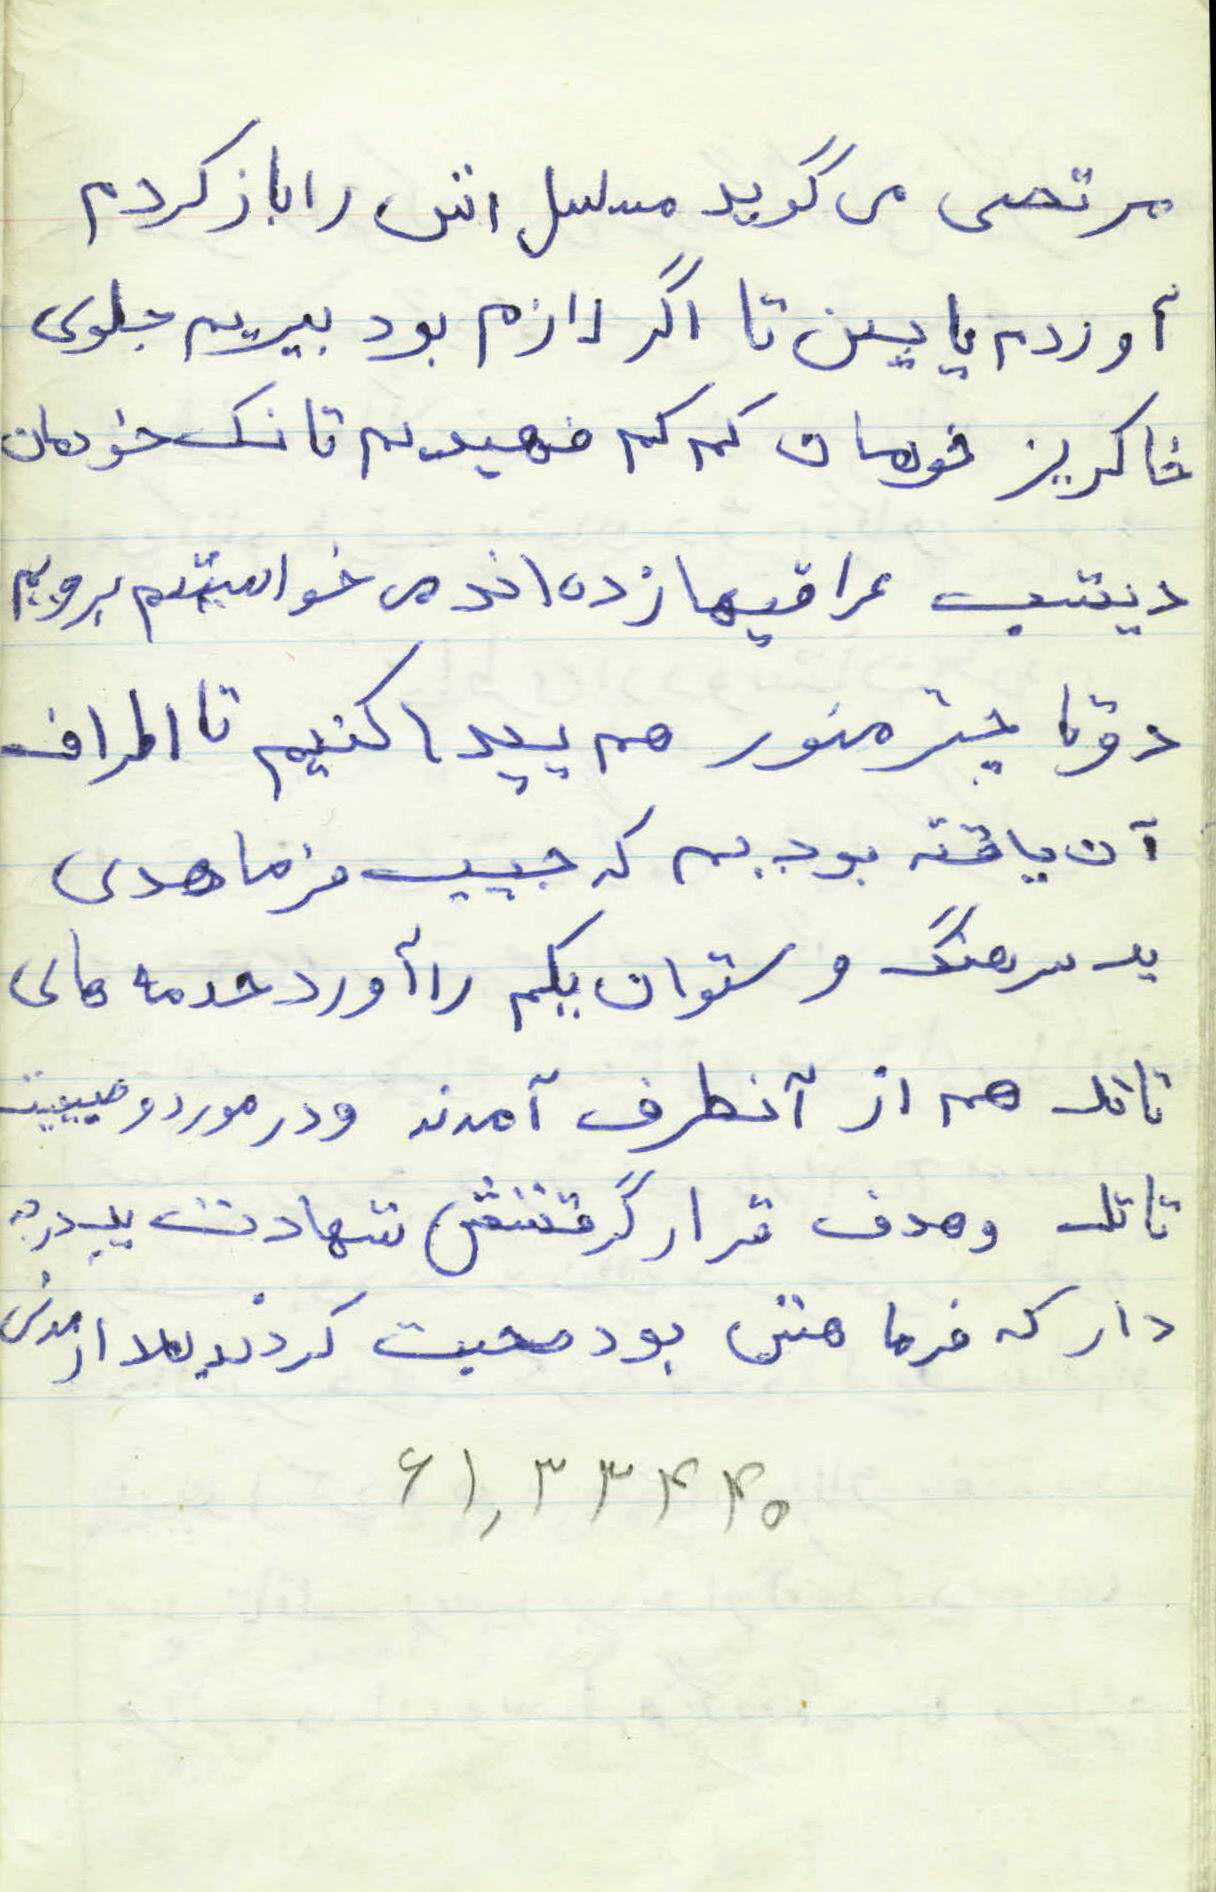 مرتضی می گوید مسلسل اش را باز کردم
آوردم پایین تا اگر لازم بود ببریم جلوی
خاکریز خودمان کم کم فهمیدیم تانک خودمان
دیشب عراقیها زده اند می خواستیم برویم
دوتا چتر منور هم پیدا کنیم تا اطراف
آن یافته بودیم که جیپ فرماندهی
یک سرهنگ و ستوان یکم را آورد خدمه های
تانک هم از آنطرف آمدند و در مورد وضعیت
تانک و هدف قرار گرفتنش شهادت یک درجه
دار که فرمانده اش بود صحبت کردند بعد از مدتی
۶۱,۳۳۴۴۰